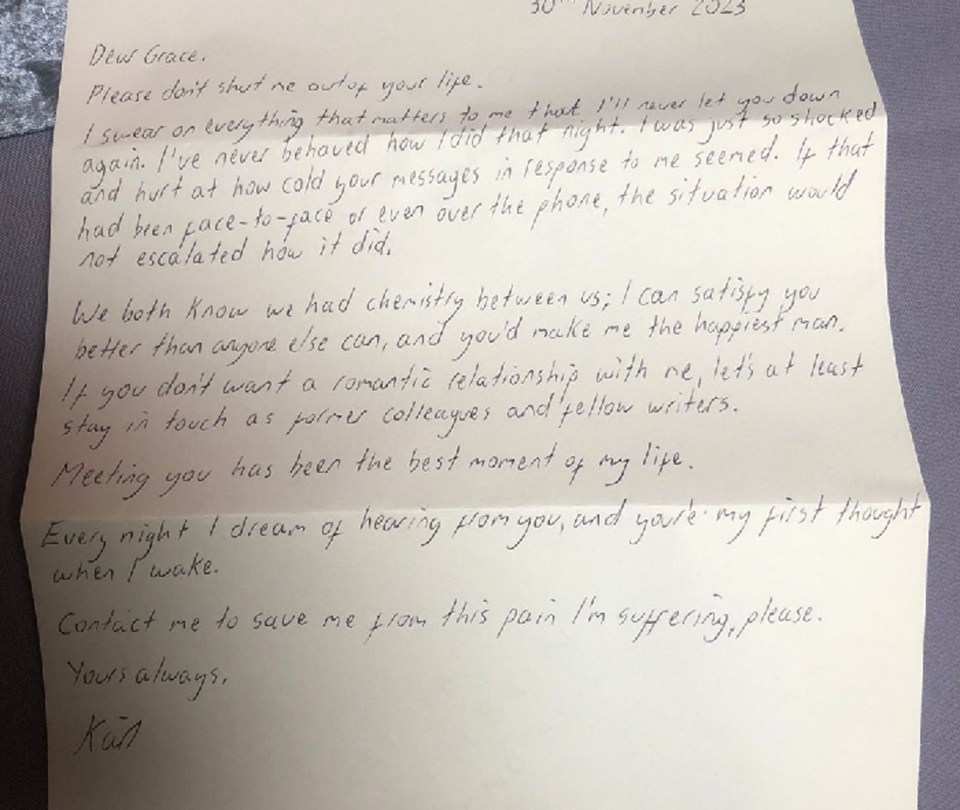 30th November 2023
Dear Grace.
Please don't shut me out of your life.
I swear on everything that matters to me that I'll never let you down
again. I've never behaved how I did that night. I was just so shocked
and hurt at how cold your messages in response to me seemed. If that
had been face-to-face or even over the phone, the situation would
not escalated how it did.
We both know we had chemistry between us; I can satisfy you
better than anyone else can, and you'd make me the happiest man.
If you don't want a romantic relationship with me, let's at least
stay in touch as former colleagues and fellow writers.
Meeting you has been the best moment of my life.
Every night I dream of hearing from you, and you're my first thought
when I wake.
Contact me to save me from this pain I'm suffering, please.
Yours always,